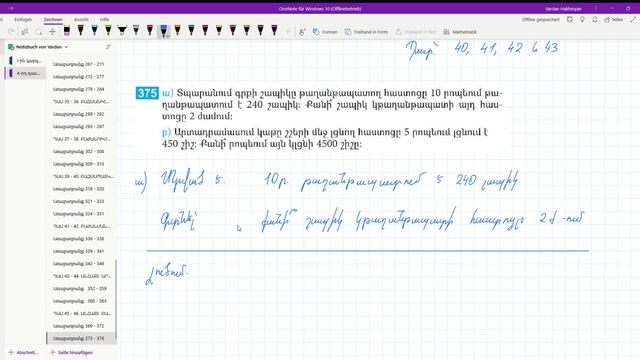 OneNote für Windows 10 (Offlinebetrieb)
Vardan Hakhinyan
Einfügen
Zeichnen
Ansicht
Offline gespeichert
Freigeben
Form
Freihand in Form
Freihand in Text
Mathematik
Notizbuch von Vardan
40, 41, 42 և 43
375 ա) Տպարանում գրքի շապիկը թաղանթապատող հաստոցը 10 րոպեում թա-
ղանթապատում է 240 շապիկ: Քանի՞ շապիկ կթաղանթապատի այդ հաս-
տոցը 2 ժամում:
բ) Արտադրամասում կաթը շշերի մեջ լցնող հաստոցը 5 րոպեում լցնում է
450 շիշ: Քանի՞ րոպեում այն կլցնի 4500 շիշը:
ա) Տրված է. 10ր. թաղանթապատում է 240 շապիկ
Գտնել քանի՞ շապիկ կթաղանթապատի հաստոցը 2 ժ.-ում
Լուծում.
Առաջադրանք 267 - 271
Առաջադրանք 272 - 277
Առաջադրանք 278 - 283
Առաջադրանք 284 - 288
Առաջադրանք 289 - 292
Առաջադրանք 293 - 297
Առաջադրանք 298 - 302
Առաջադրանք 303 - 307
Առաջադրանք 308 - 312
Առաջադրանք 313 - 317
Առաջադրանք 318 - 320
Առաջադրանք 321 - 324
Առաջադրանք 324 - 331
Առաջադրանք 336 - 338
Առաջադրանք 339 - 341
Առաջադրանք 342 - 346
Առաջադրանք 352 - 359
Առաջադրանք 360 - 363
Առաջադրանք 365 - 368
Առաջադրանք 369 - 372
Առաջադրանք 373 - 376
Abschnit...
Seite hinzufügen